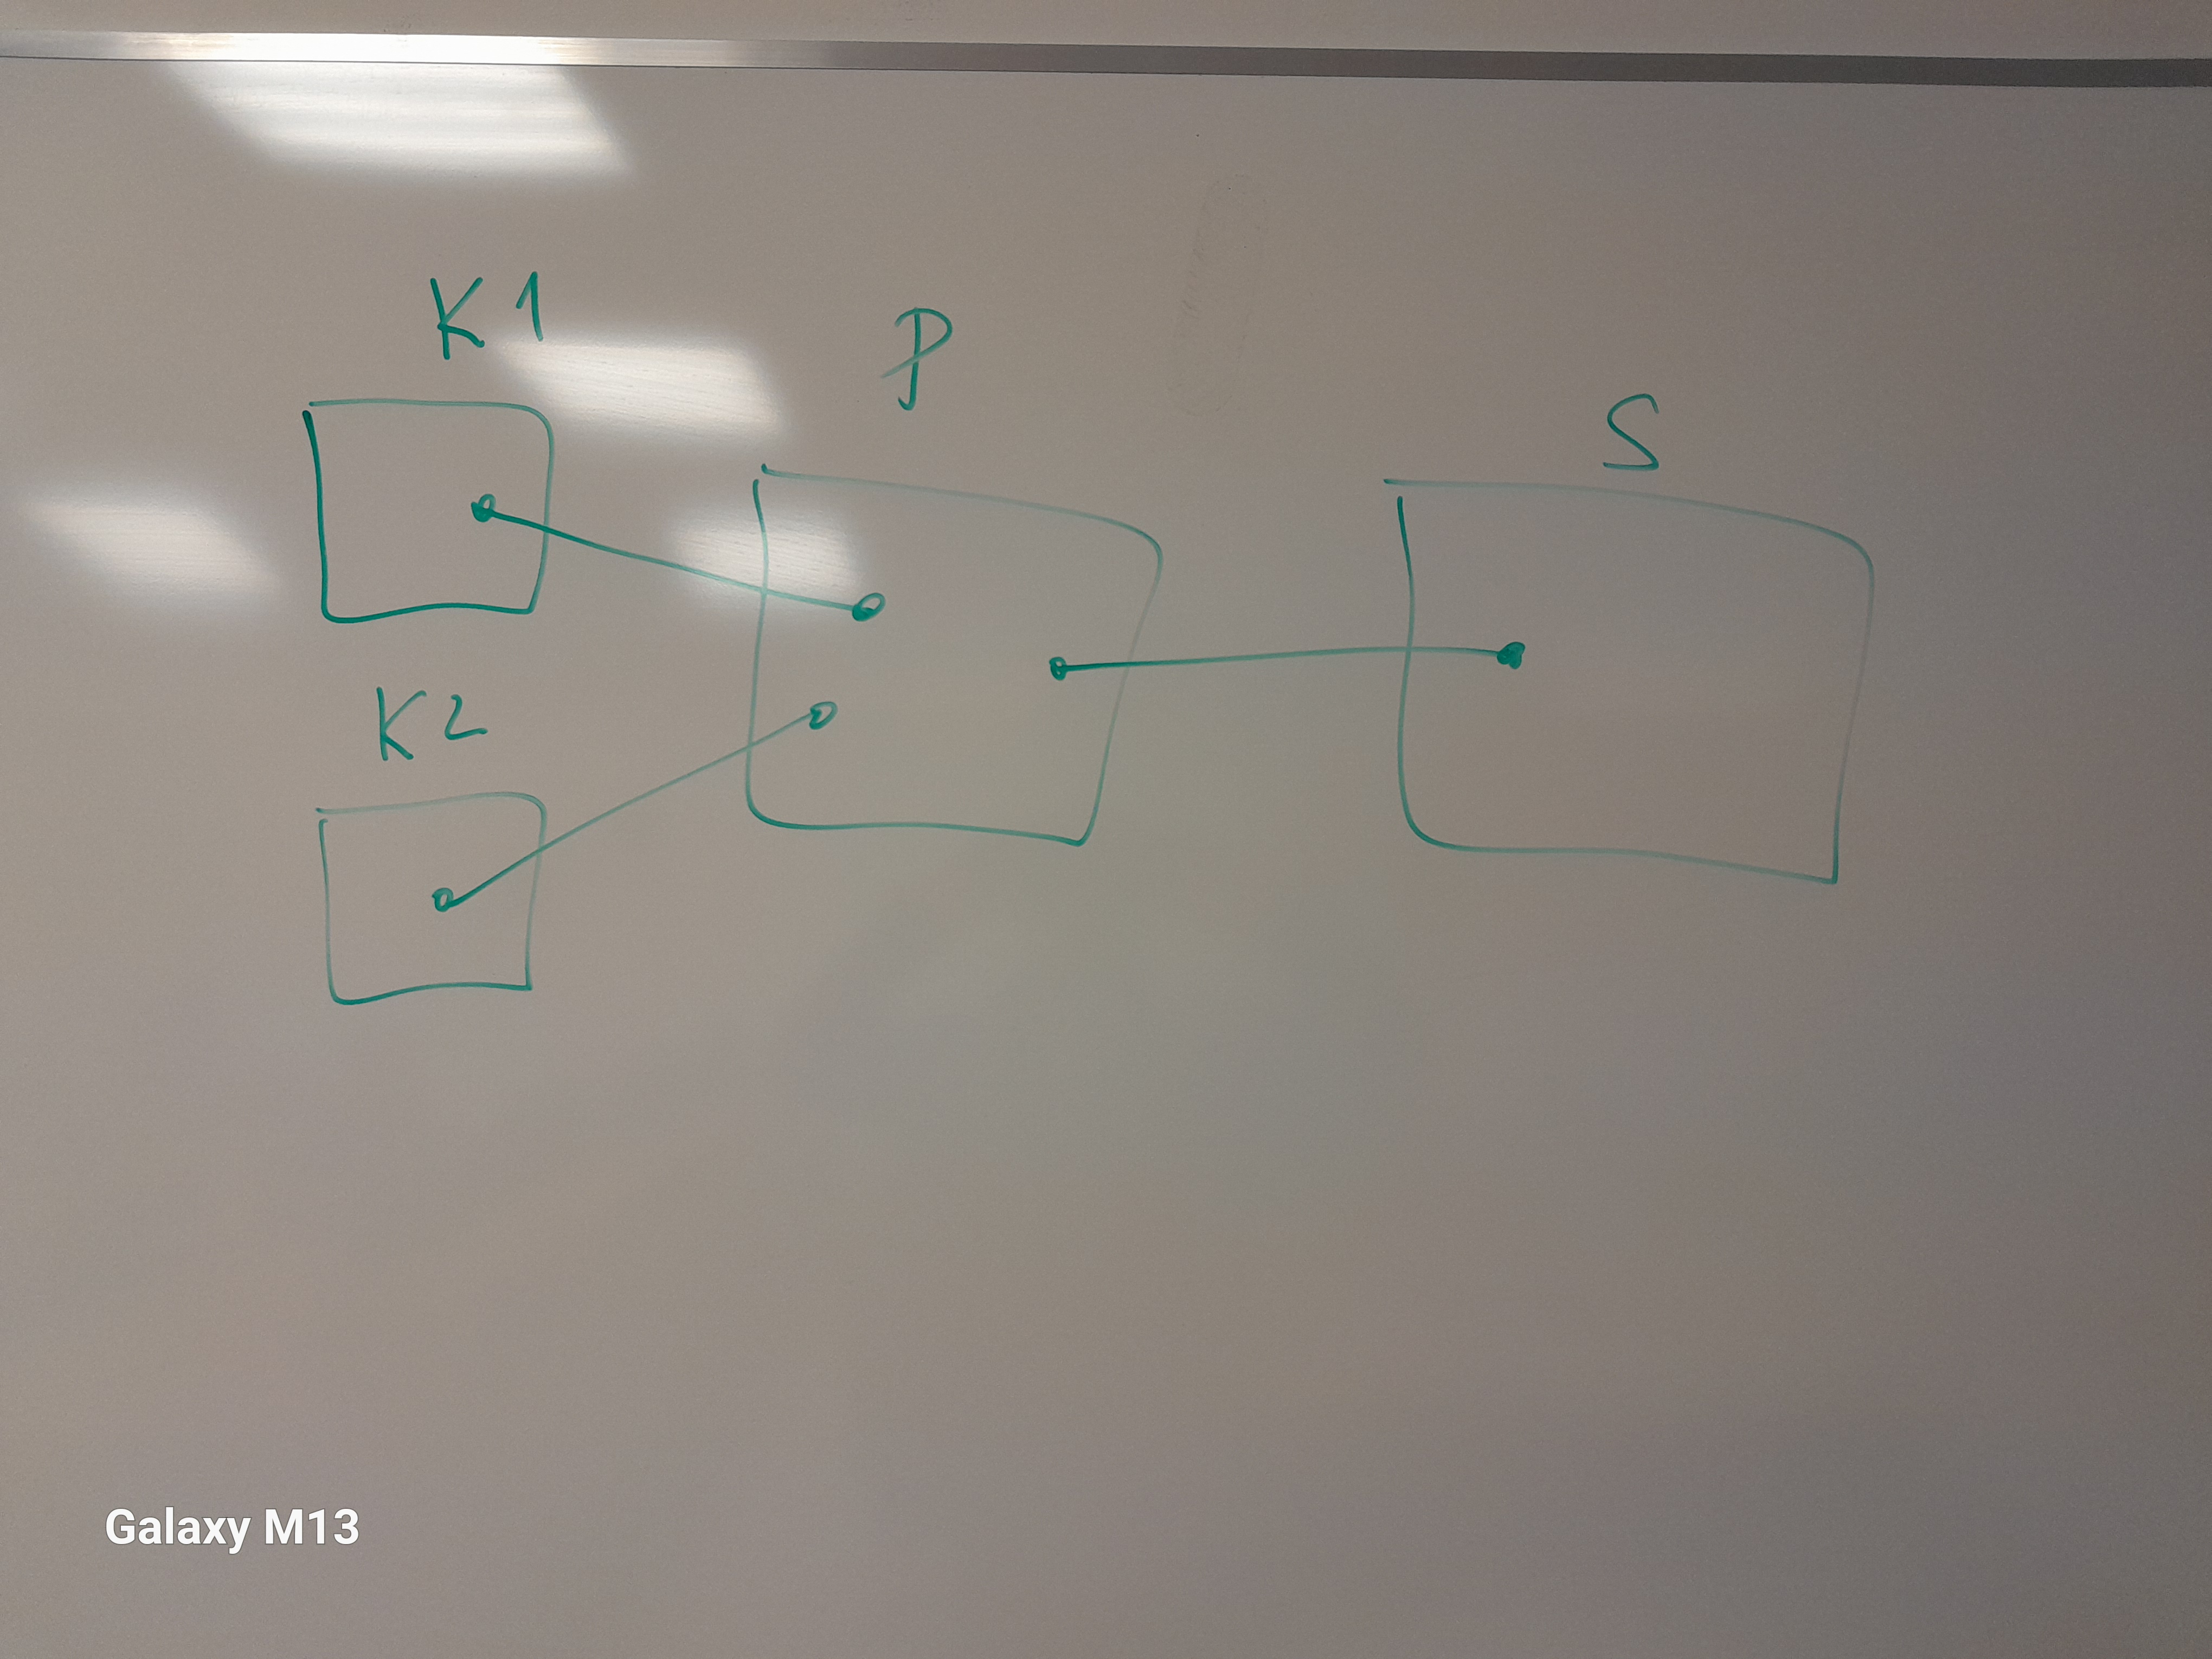 K1
P
S
K2
Galaxy M13